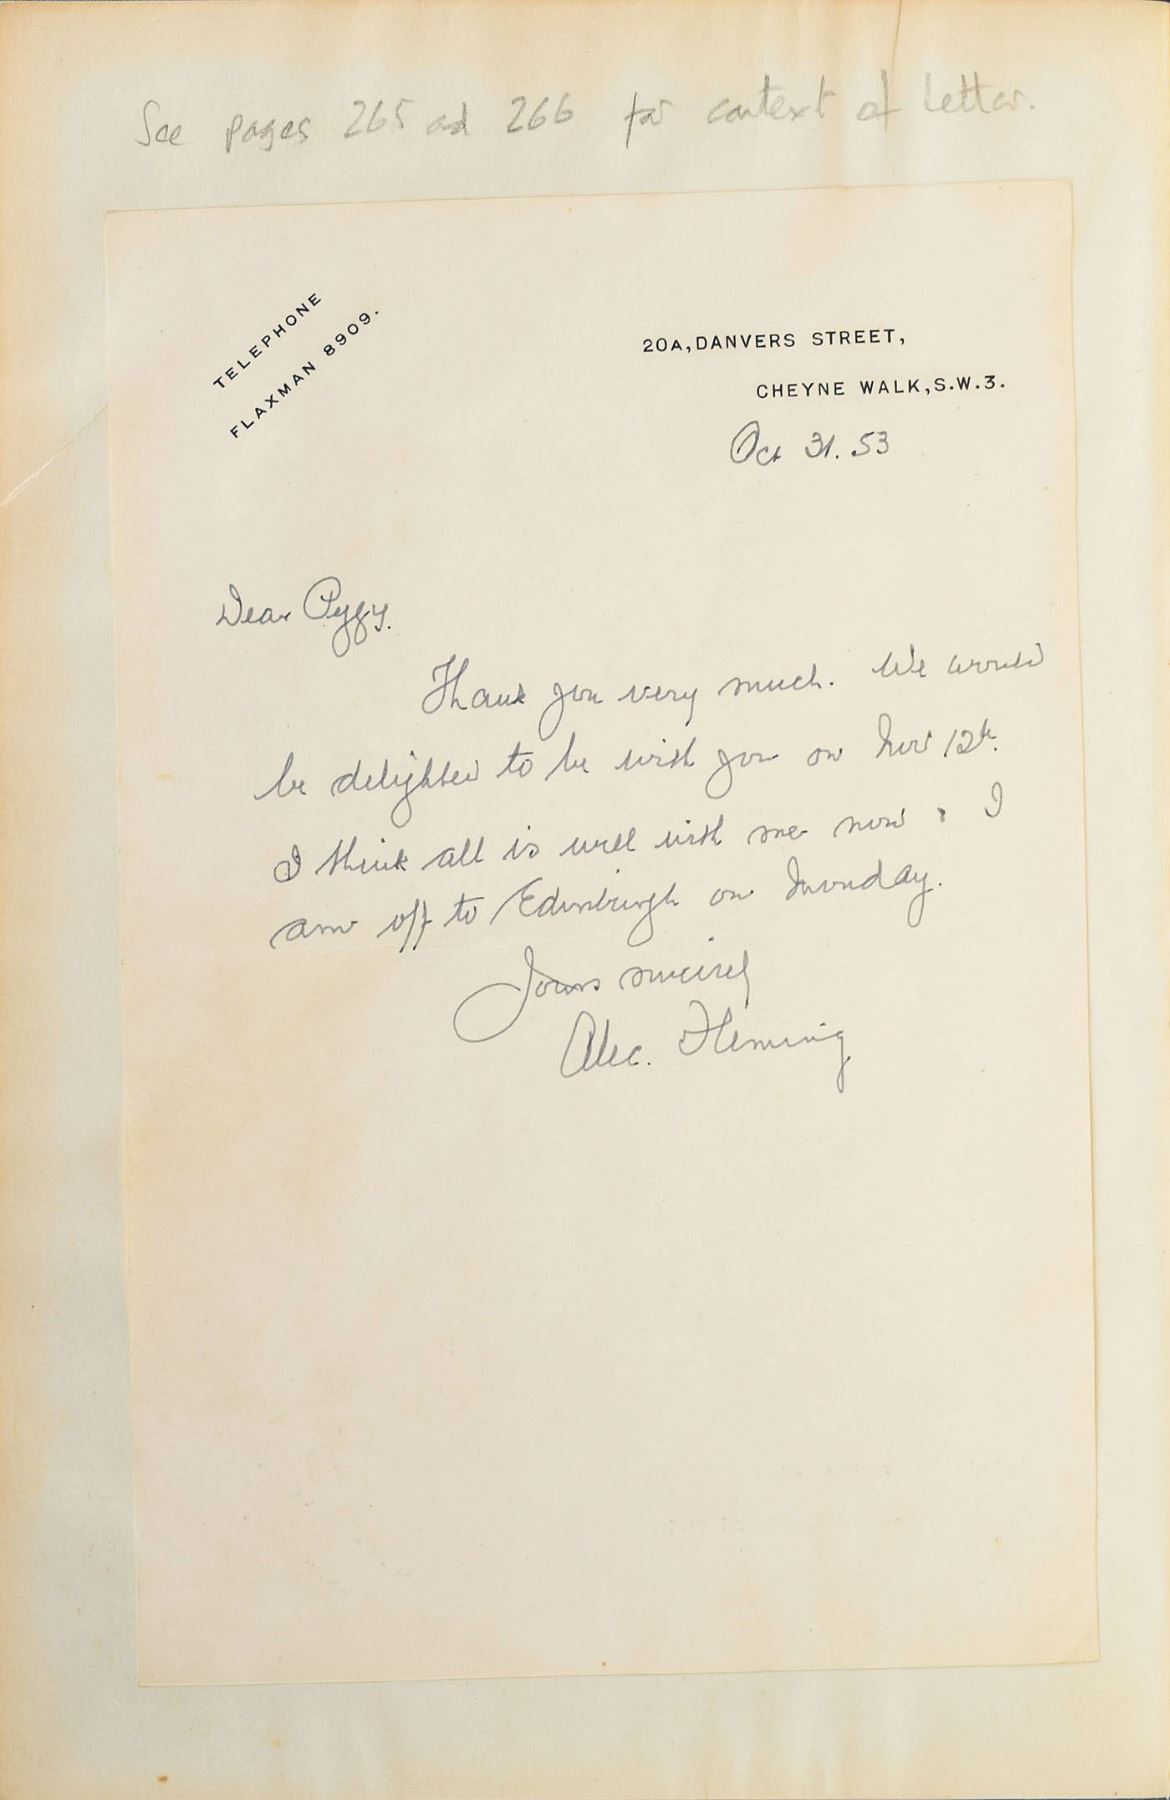 See pages 265 ad 266 for context of letter.
TELEPHONE
FLAXMAN 8909.
20A, DANVERS STREET,
CHEYNE WALK, S.W.3.
Oct 31. 53
Dear Peggy.
Thank you very much. We would
be delighted to be with you on Nov 12th.
I think all is well with me now. I
am off to Edinburgh on Monday.
Yours sincerely
Alec. Fleming